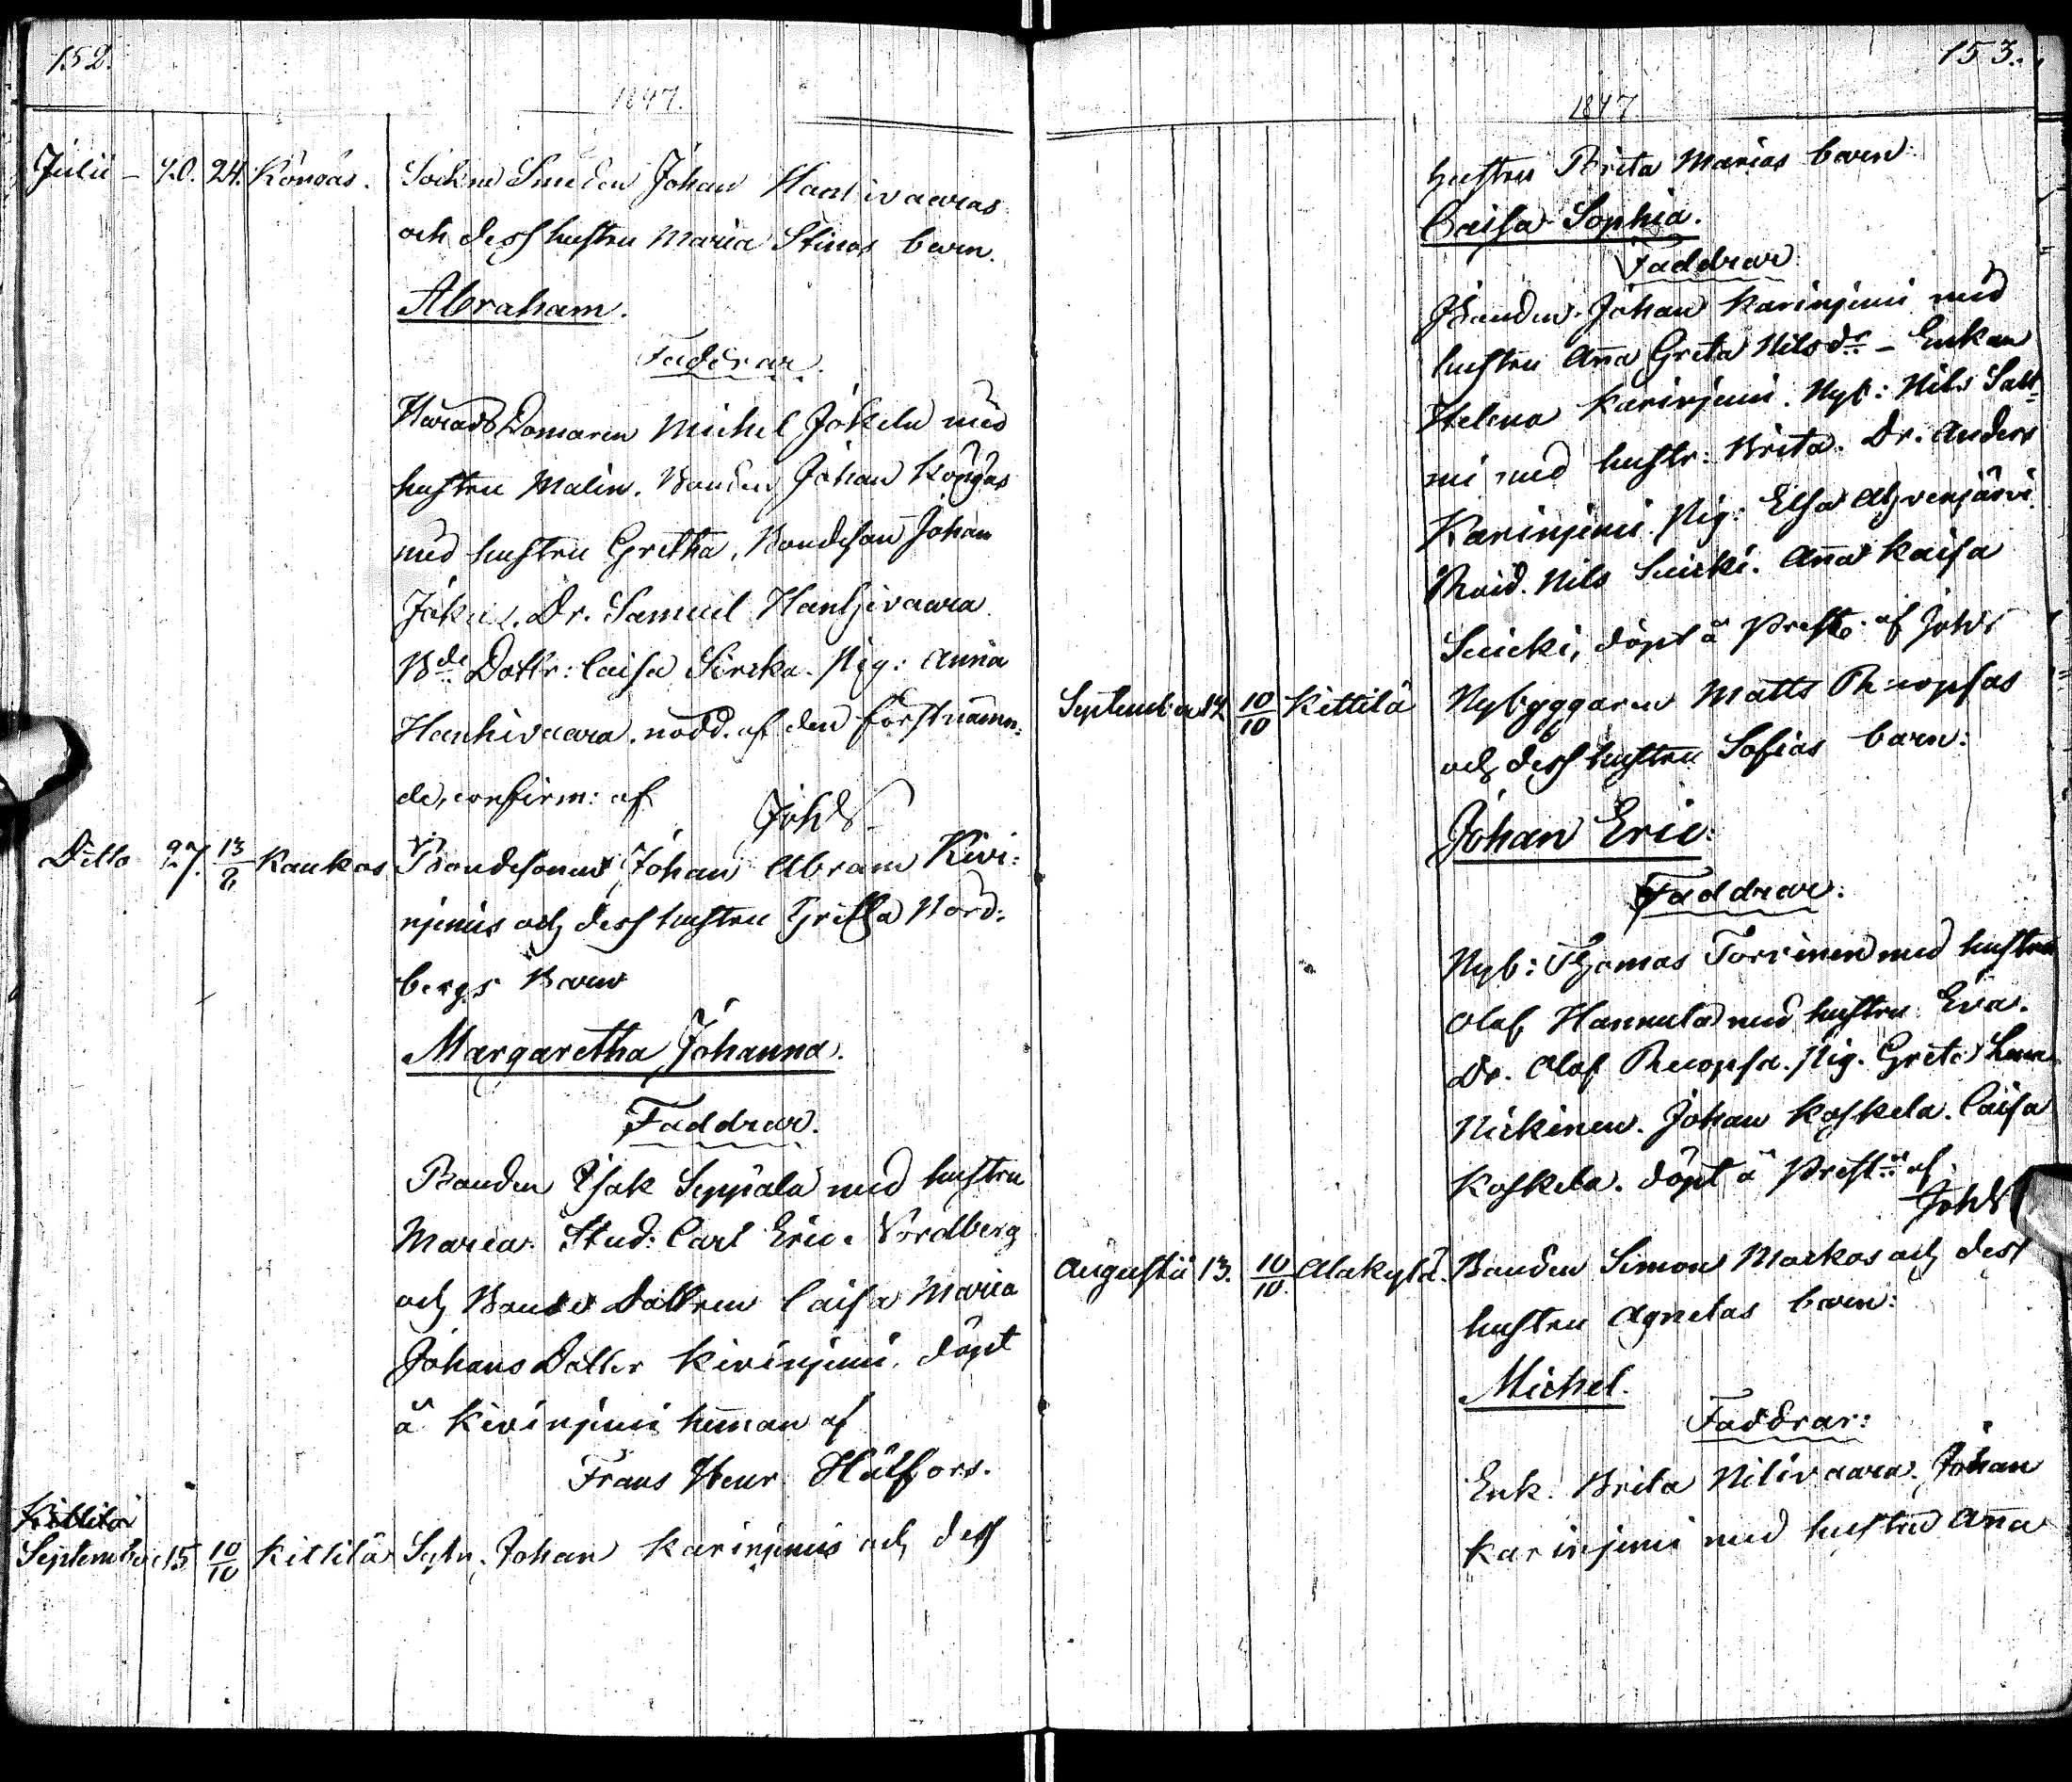 152.
1847.
Julii – 20. 24. Köngäs. Sockne Smeden Johan Hanhivaaras
och dess hustru Maria Stinas barn.
Abraham.
Faddrar.
Härads Domaren Michel Jokela med
hustru Malin. Bonden Johan Köngäs
med hustru Gretha, Bondeson Johan
Dr. Samuel Hanhivaara
Bde Dottr: Caisa Sircka. Pig: Anna
Hanhivaara. nödd. af den förstnämn-
de, confirm: af
Ditto 27. 13/8 Kaukos Bondesonens Johan Abram Kivi:
njemis och dess hustru Gretha Nord:
bergs Barn
Margaretha Johanna.
Faddrar.
Bonden Isak Seppälä med hustru
Maria. Stud: Carl Eric Nordberg
och Bonde Dottren Caisa Maria
Johans Dotter Kivinjemi, döpt
å Kivinjemi heman af
Frans Henr. Hällfors.
Kittilä
September 15 10/10 Kittilä Sytn. Johan Karinjemis och dess
153.
1847
hustru Brita Marias barn:
Caisa Sophia.
Faddrar
Bonden Johan Karinjemi med
hustru Aña Greta Nilsdr – Enkan
Helena Karinjemi. Nyb: Nils Salt=
mi med hustr: Brita. Dr. Anders
Karinjemi. Pig: Elsa Ahvenjärvi
Nils Suicki. Aña Kaisa
Suicki, döpt å Prestg. af
September 12 10/10 Kittilä Nybyggaren Matts Ruopsas
och dess hustru Sofias barn:
Johan Eric:
Faddrar:
Nyb: Thomas Torvinen med hustru
Olof Hannula med hustru Eva.
Dr. Olof Ruopsa. Pig. Greta
Nickinen. Johan Koskela. Caisa
Koskela. döpt å Prestg. af
Augustii 13. 10/10 Alakylä. Bonden Simon Markos och dess
hustru Agnetas barn:
Michel.
Faddrar:
Enk. Brita Nilivaara. Johan
Karinjemi med hustru Aña